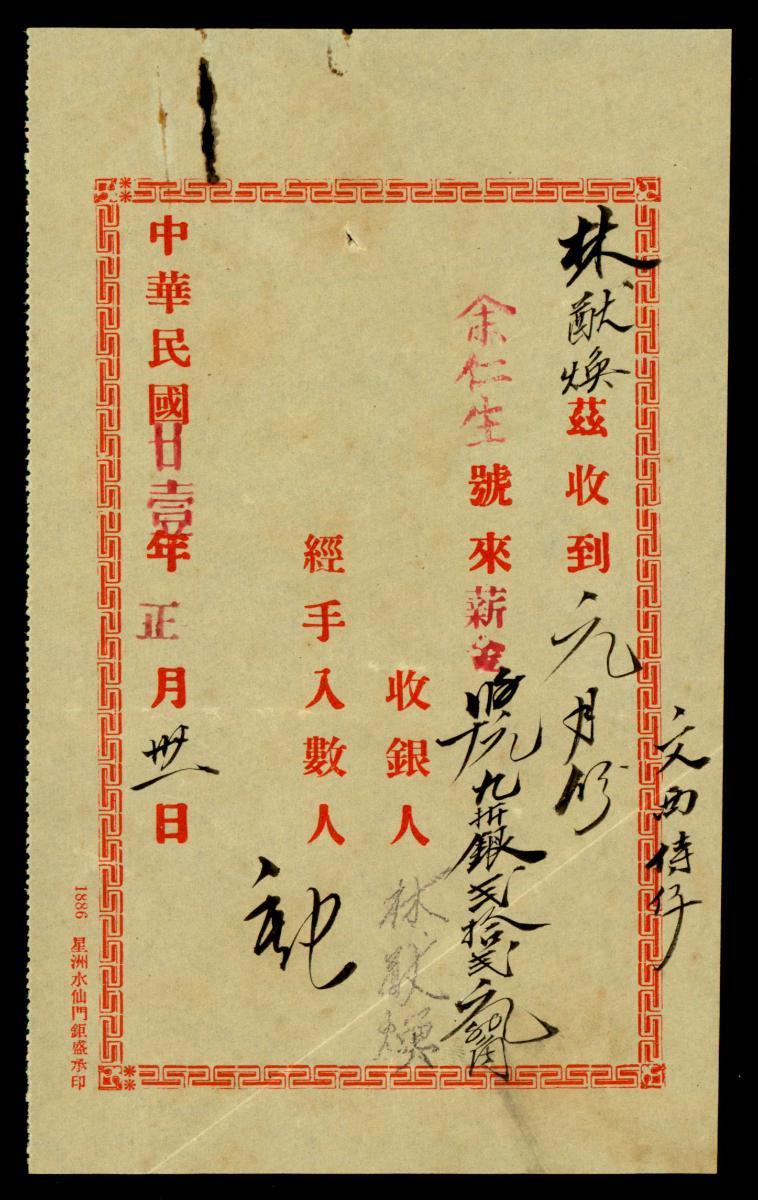 文西侍仔
林猷煥茲收到元月份
余仁生號來薪金
九折銀弍拾弍元
收銀人林猷煥
經手入數人
中華民國廿壹年正月卅一日
1886 星洲水仙門鉅盛承印